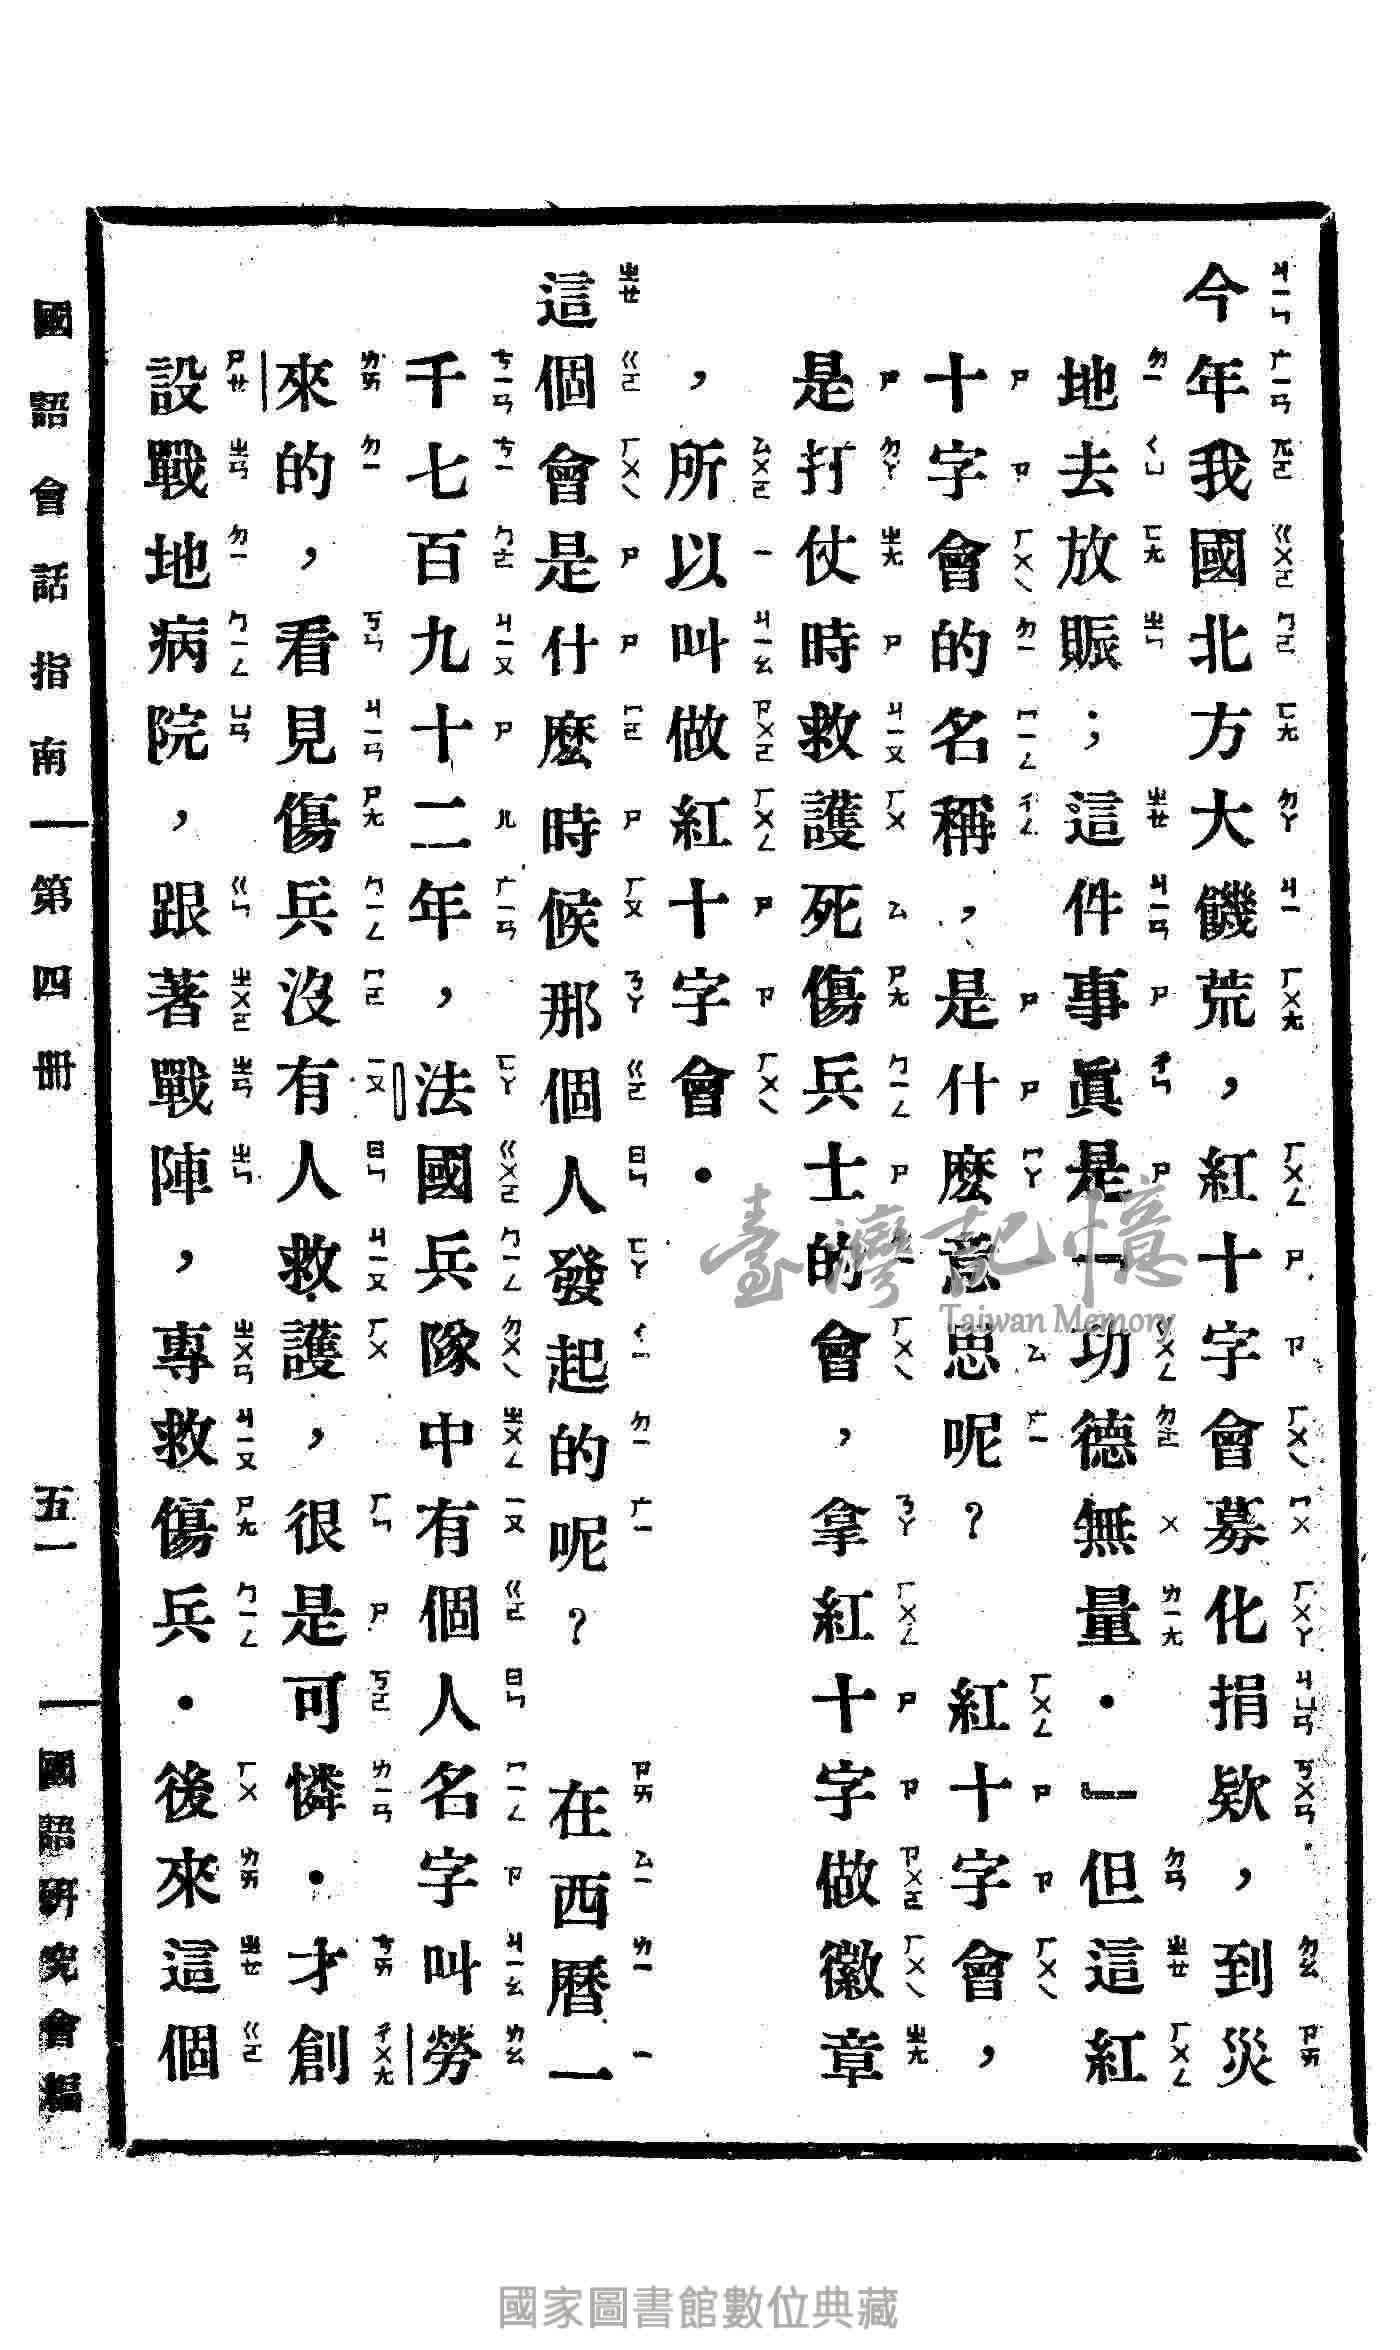 今年我國北方大饑荒，紅十字會募化捐欵，到災
地去放賑；這件事眞是「功德無量．」但這紅
十字會的名稱，是什麽意思呢？　紅十字會，
是打仗時救護死傷兵士的會，拿紅十字做徽章
，所以叫做紅十字會．
這個會是什麽時候那個人發起的呢？　在西曆一
千七百九十二年，法國兵隊中有個人名字叫勞
來的，看見傷兵沒有人救護，很是可憐．才創
設戰地病院，跟著戰陣，專救傷兵．後來這個
國語會話指南—第四冊　五一　—國語研究會編
臺灣記憶
Taiwan Memory
國家圖書館數位典藏